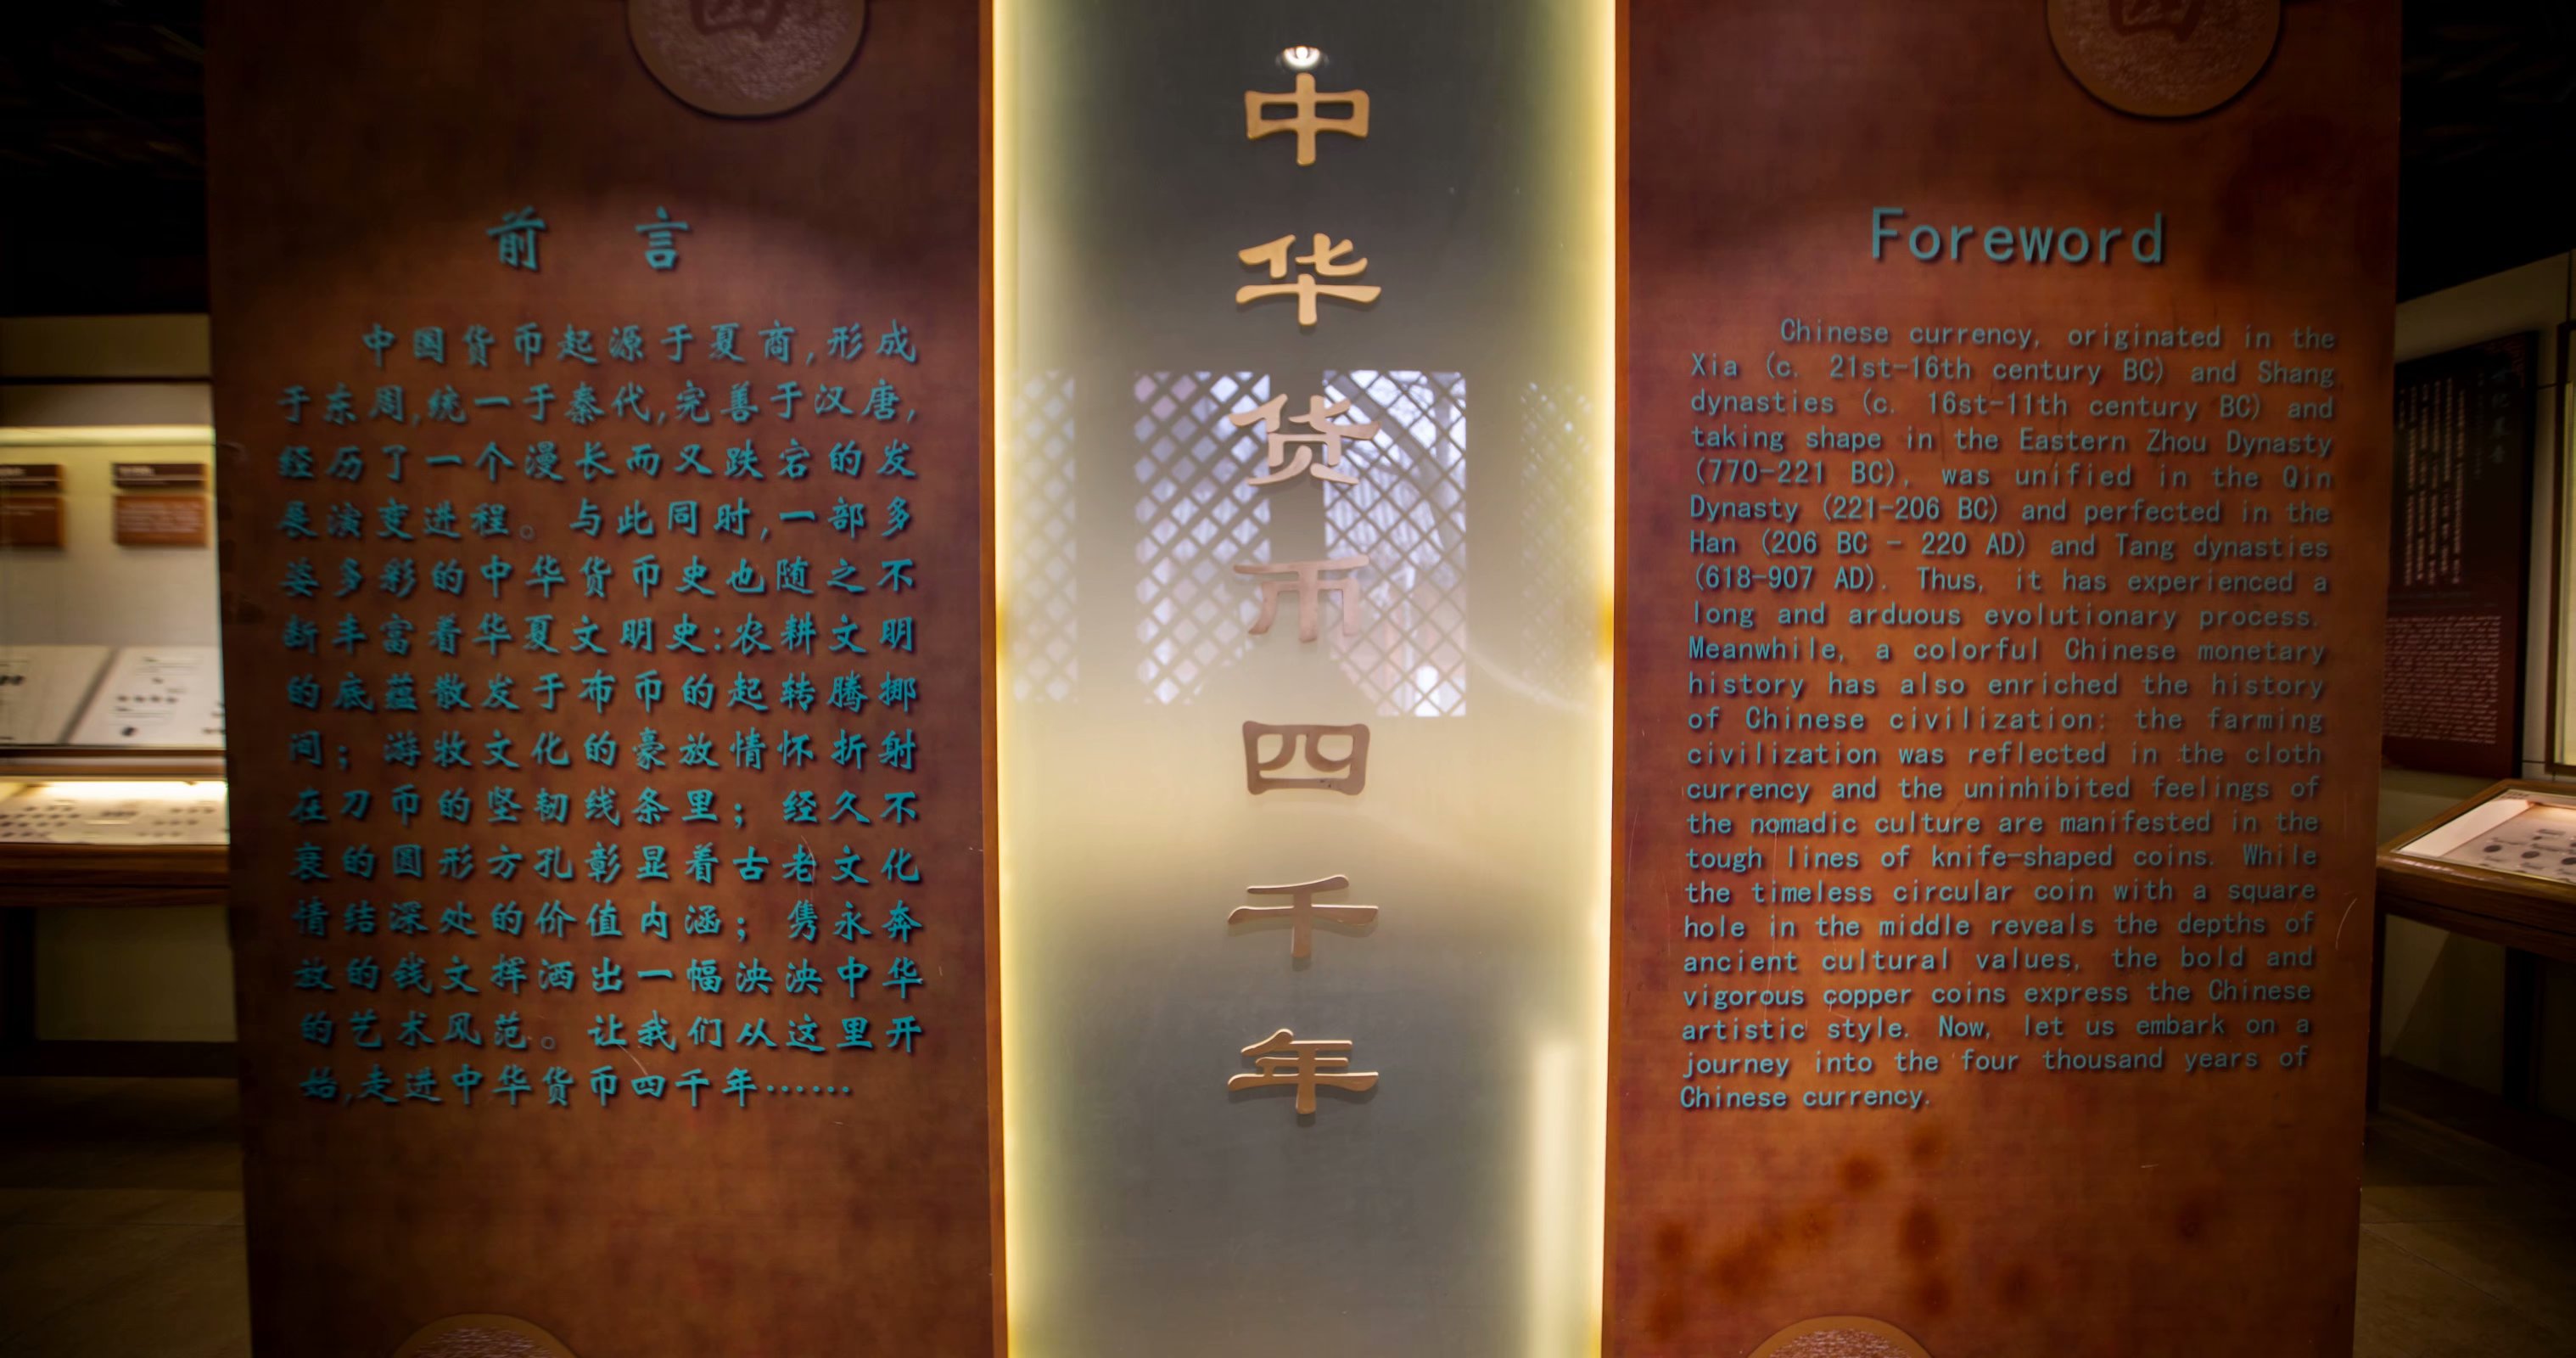 前言
中国货币起源于夏商,形成
于东周,统一于秦代,完善于汉唐,
经历了一个漫长而又跌宕的发
展演变进程。与此同时,一部多
姿多彩的中华货币史也随之不
断丰富着华夏文明史:农耕文明
的底蕴散发于布币的起转腾挪
间;游牧文化的豪放情怀折射
在刀币的坚韧线条里;经久不
衰的圆形方孔彰显着古老文化
情结深处的价值内涵;隽永奔
放的钱文挥洒出一幅泱泱中华
的艺术风范。让我们从这里开
始,走进中华货币四千年……
中华货币四千年
Foreword
Chinese currency, originated in the
Xia (c. 21st-16th century BC) and Shang
dynasties (c. 16st-11th century BC) and
taking shape in the Eastern Zhou Dynasty
(770-221 BC), was unified in the Qin
Dynasty (221-206 BC) and perfected in the
Han (206 BC - 220 AD) and Tang dynasties
(618-907 AD). Thus, it has experienced a
long and arduous evolutionary process.
Meanwhile, a colorful Chinese monetary
history has also enriched the history
of Chinese civilization: the farming
civilization was reflected in the cloth
currency and the uninhibited feelings of
the nomadic culture are manifested in the
tough lines of knife-shaped coins. While
the timeless circular coin with a square
hole in the middle reveals the depths of
ancient cultural values, the bold and
vigorous copper coins express the Chinese
artistic style. Now, let us embark on a
journey into the four thousand years of
Chinese currency.